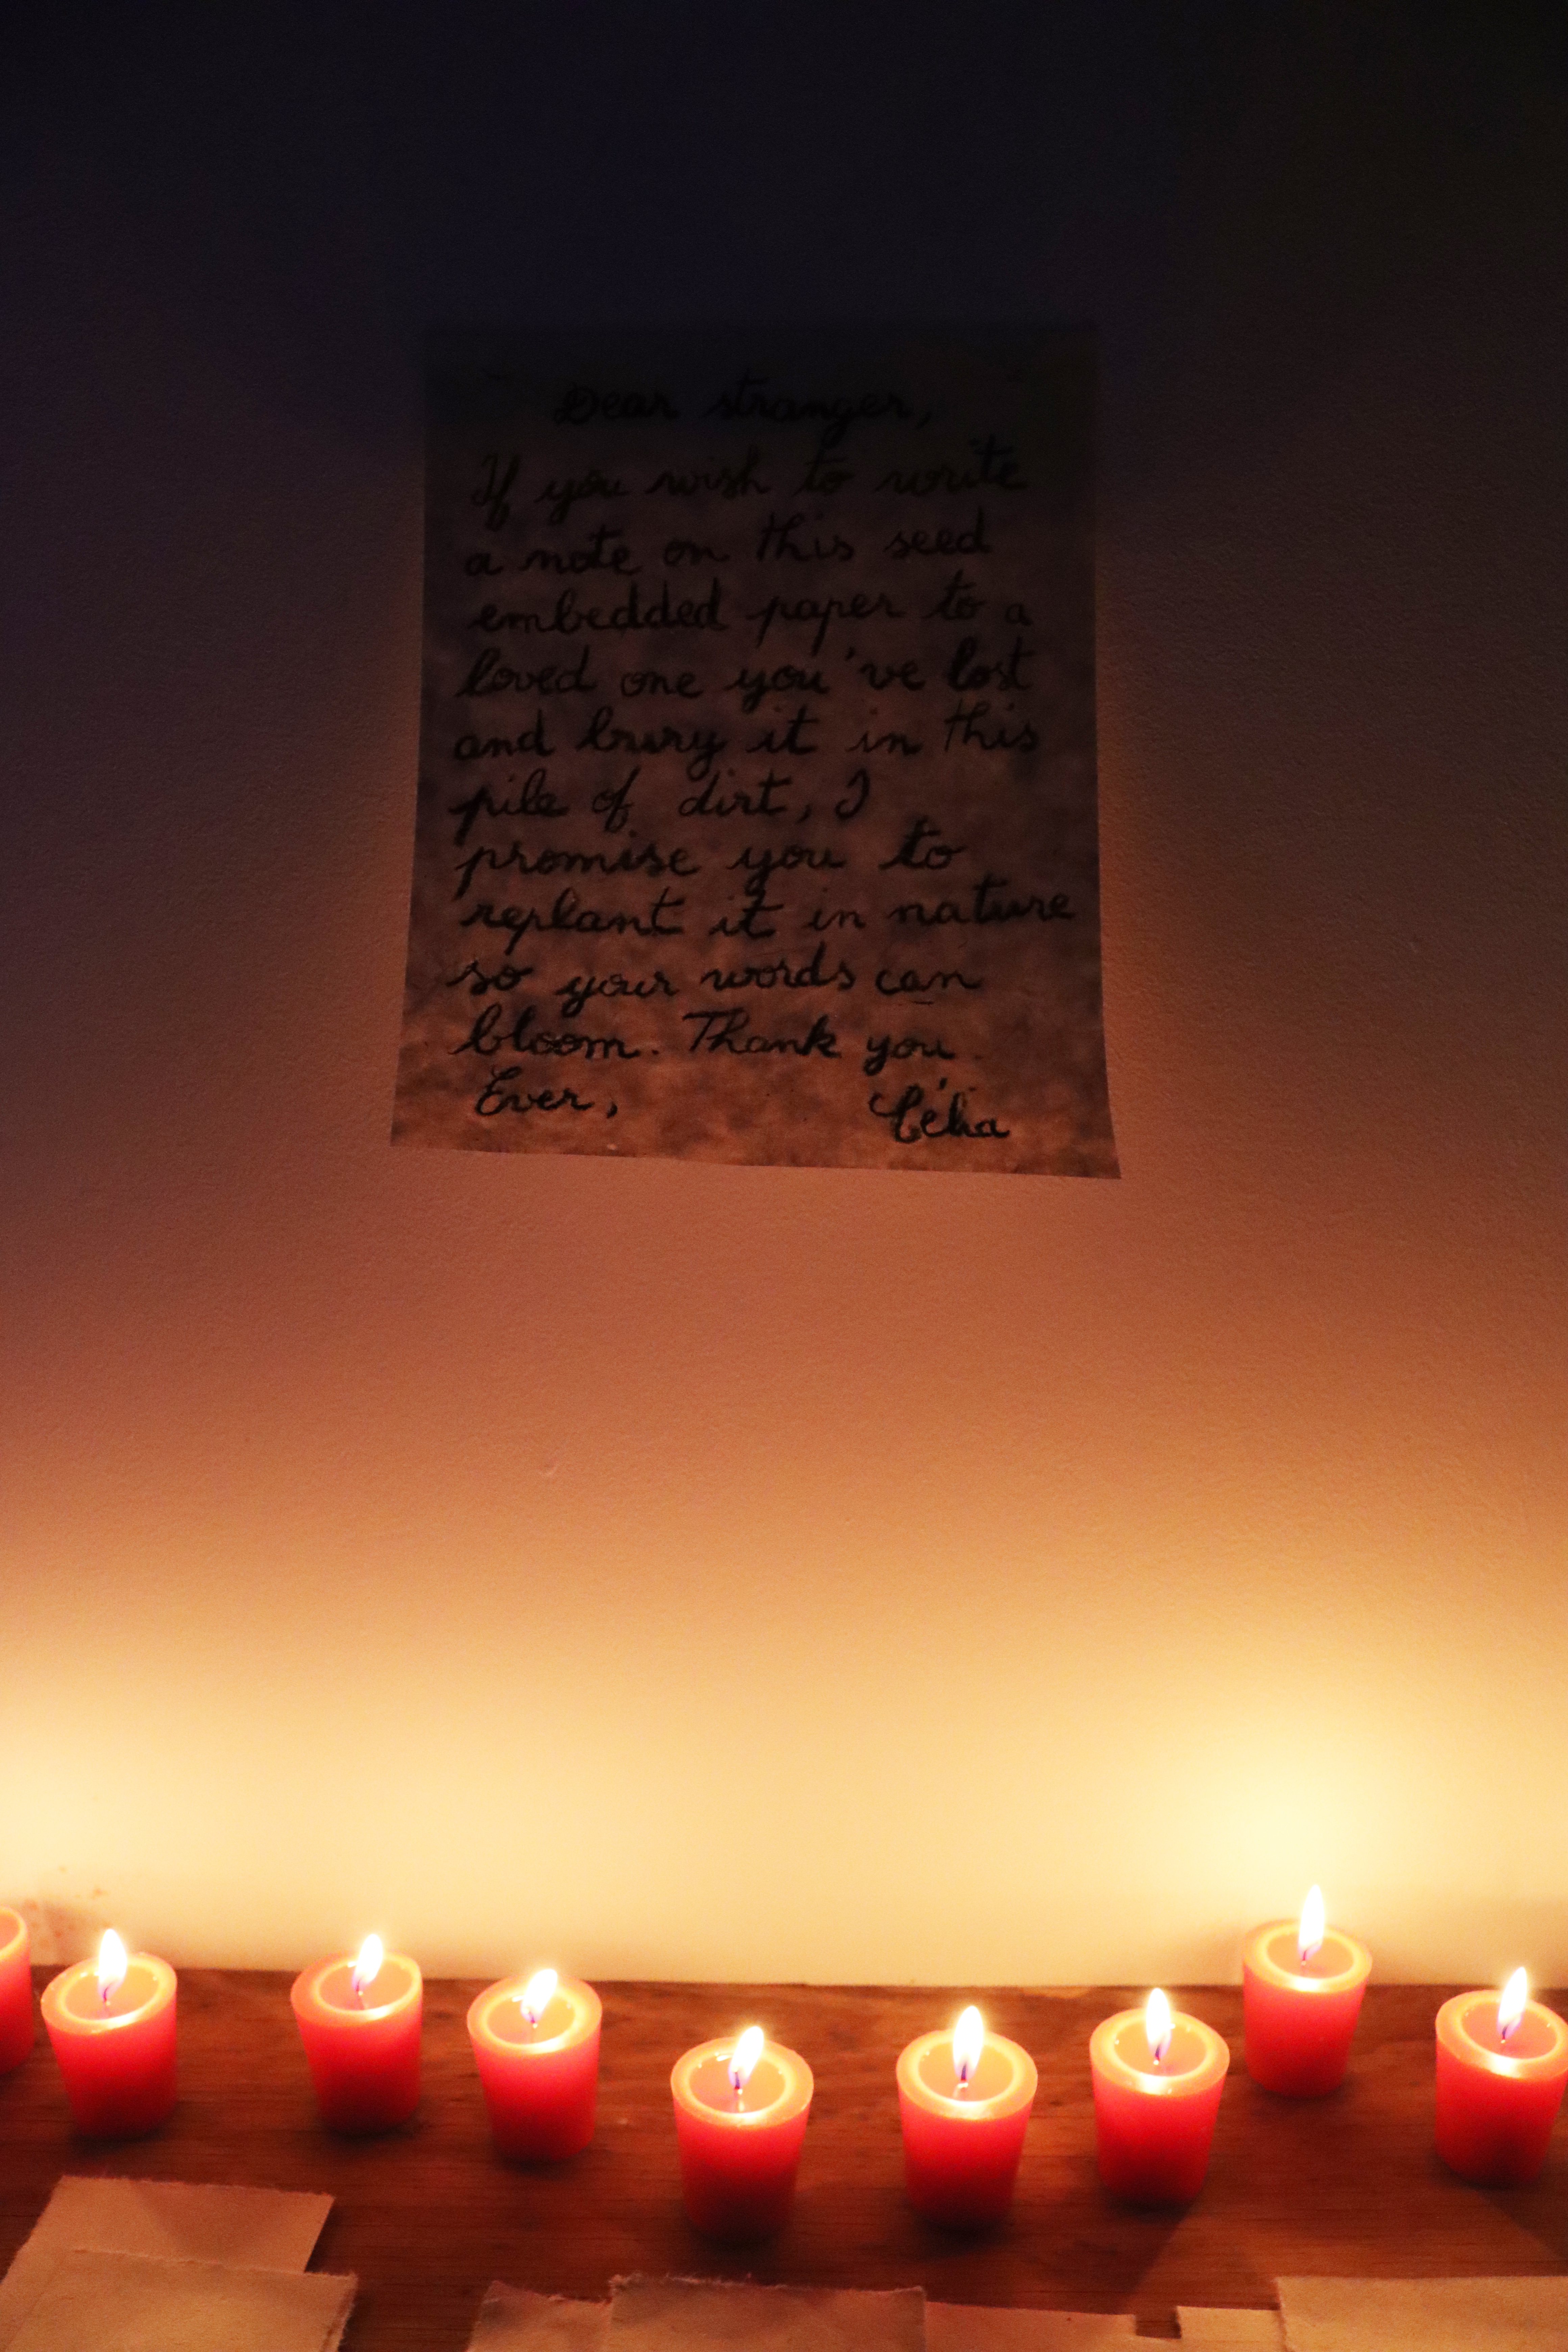 Dear stranger,
If you wish to write
a note on this seed
embedded paper to a
loved one you've lost
and bury it in this
pile of dirt, I
promise you to
replant it in nature
so your words can
bloom. Thank you.
Ever, Célia